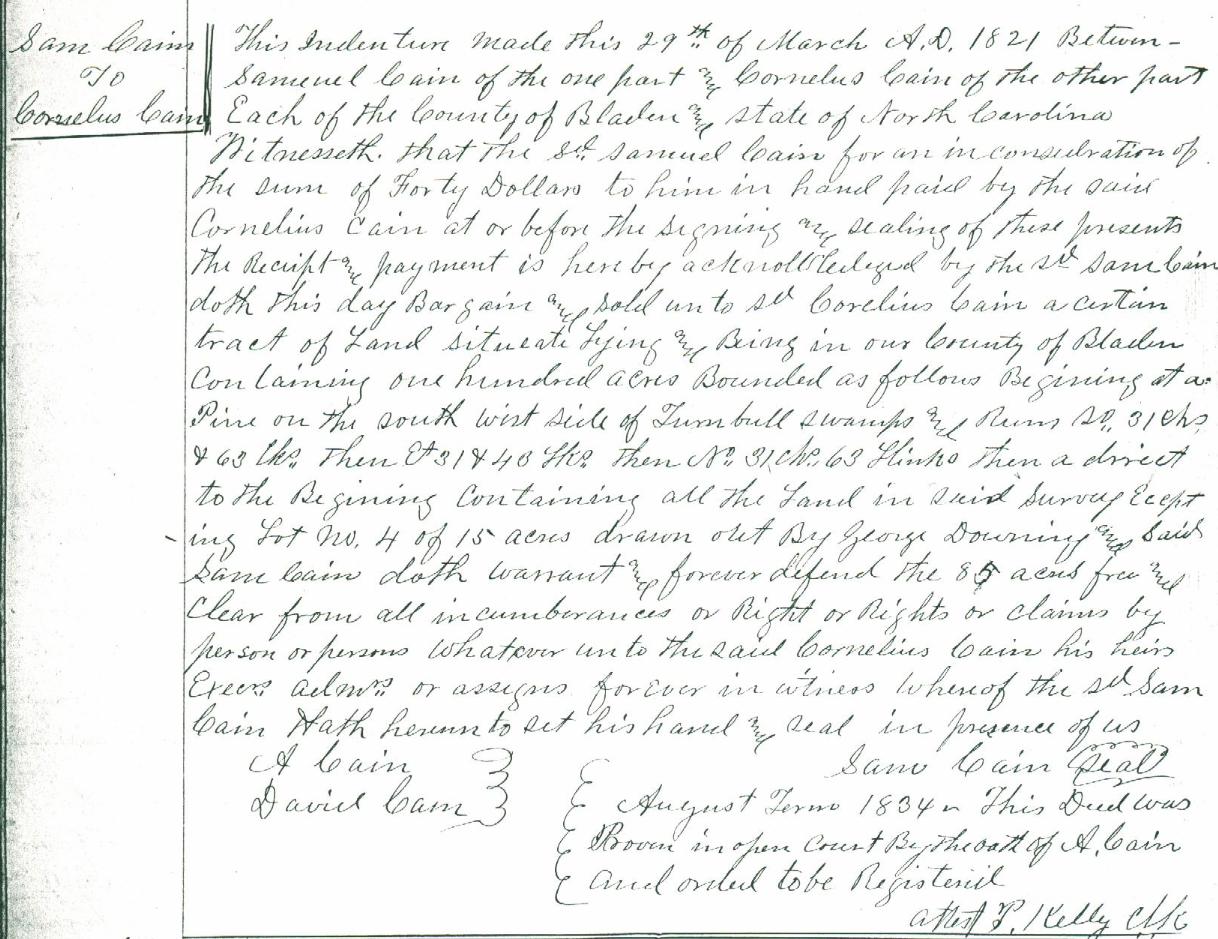 Sam Cain
To
Cornelus Cain
This Indenture made this 29th of March A.D. 1821 Betwen-
Samuel Cain of the one part and Cornelus Cain of the other part
Each of the County of Bladen and state of North Carolina
Witnesseth. that the sd. Samuel Cain for an in consedration of
the sum of Forty Dollars to him in hand paid by the said
Cornelius Cain at or before the signing and sealing of these presents
the Receipt and payment is hereby acknolledged by the sd Sam Cain
doth this day Bargain and sold unto sd Corelius Cain a certin
tract of Land situate Lying and Being in our County of Bladen
Containing one hundred acres Bounded as follows Begining at a
Pine on the south west side of Turnbull swamps and Runs So. 31 chs
& 63 lks. then Et 31 & 43 Lks. then No. 31 ch. 63 Links then a direct
to the Begining Containing all the Land in said Survey Ecept
ing Lot No. 4 of 15 acres drawn out By George Downing and Said
Sam Cain doth warrant and forever defend the 85 acres free and
Clear from all incumberances or Right or Rights or claims by
person or persons whatever unto the said Cornelius Cain his heirs
Execrs. admrs. or assigns forever in witness whereof the sd Sam
Cain Hath hereunto set his hand and seal in presence of us
A Cain
David Cain
Sam Cain Seal
August Term 1834 This Deed was
Proven in open Court By the oath of A. Cain
and orded to be Registered
attest P. Kelly Clk